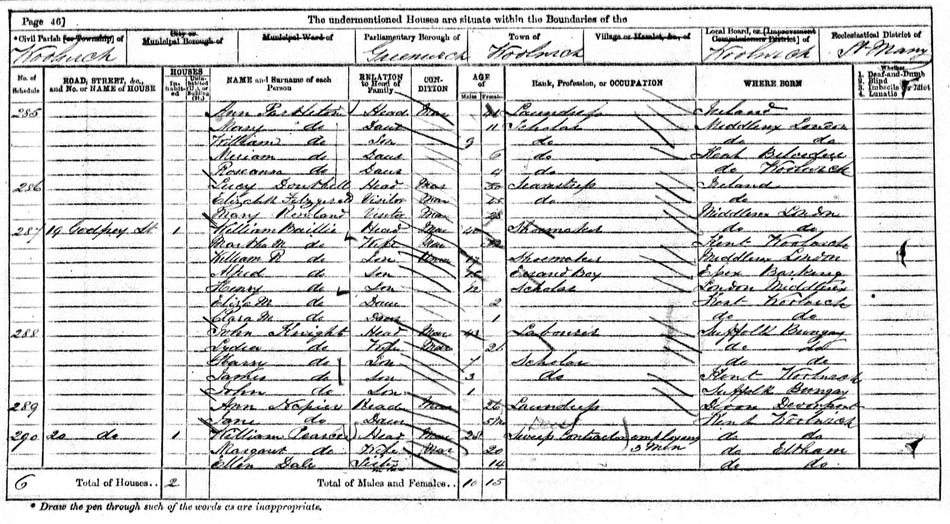 Page 46]
The undermentioned Houses are situate within the Boundaries of the
*Civil Parish [or Township] of
City or Municipal Borough of
Municipal Ward of
Parliamentary Borough of
Town of
Village or Hamlet, &c., of
Local Board, or [Improvement Commissioners District] of
Ecclesiastical District of
Woolwich Greenwich Woolwich Woolwich St Mary
No. of Schedule
ROAD, STREET, &c., and No. or NAME of HOUSE
HOUSES
Inhabited
NAME and Surname of each Person
RELATION to Head of Family
CONDITION
AGE of
Males Females
Rank, Profession, or OCCUPATION
WHERE BORN
Whether
1. Deaf-and-Dumb
2. Blind
3. Imbecile or Idiot
4. Lunatic
285 Ann Head Mar Laundress Ireland
Mary do Daur 11 Scholar Middlesex London
William do Son 9 do do do
Miriam do Daur 6 do Kent Belvedere
Roseanna do Daur 4 do do Woolwich
286 Lucy Head Mar Seamstress Ireland
Elizabeth Fitzgerald Visitor Mar do do
Mary Visitor Mar Middlesex London
287 19 Godfrey St 1 William Baillie Head Mar Shoemaker do do
Martha M do Wife Mar Kent Woolwich
William R do Son Unm 17 Shoemaker Middlesex London
Alfred do Son Errand Boy Essex Barking
Henry do Son Scholar London Middlesex
Eliza M do Daur 2 Kent Woolwich
Clara M do Daur 1 do do
288 John Knight Head Mar Labourer Suffolk Bungay
Lydia do Wife Mar do do
Harry do Son 7 Scholar do do
James do Son 3 do Kent Woolwich
John do Son 1 Suffolk Bungay
289 Ann Napier Head Mar 26 Laundress Devon Devonport
Jane do Daur Kent Woolwich
290 20 do 1 William Pearce Head Mar 28 Sweep Contractor employing 3 men do do
Margaret do Wife Mar 20 do Eltham
Ellen Dale 14 do do
6 Total of Houses.. 2 Total of Males and Females.. 10 15
* Draw the pen through such of the words as are inappropriate.